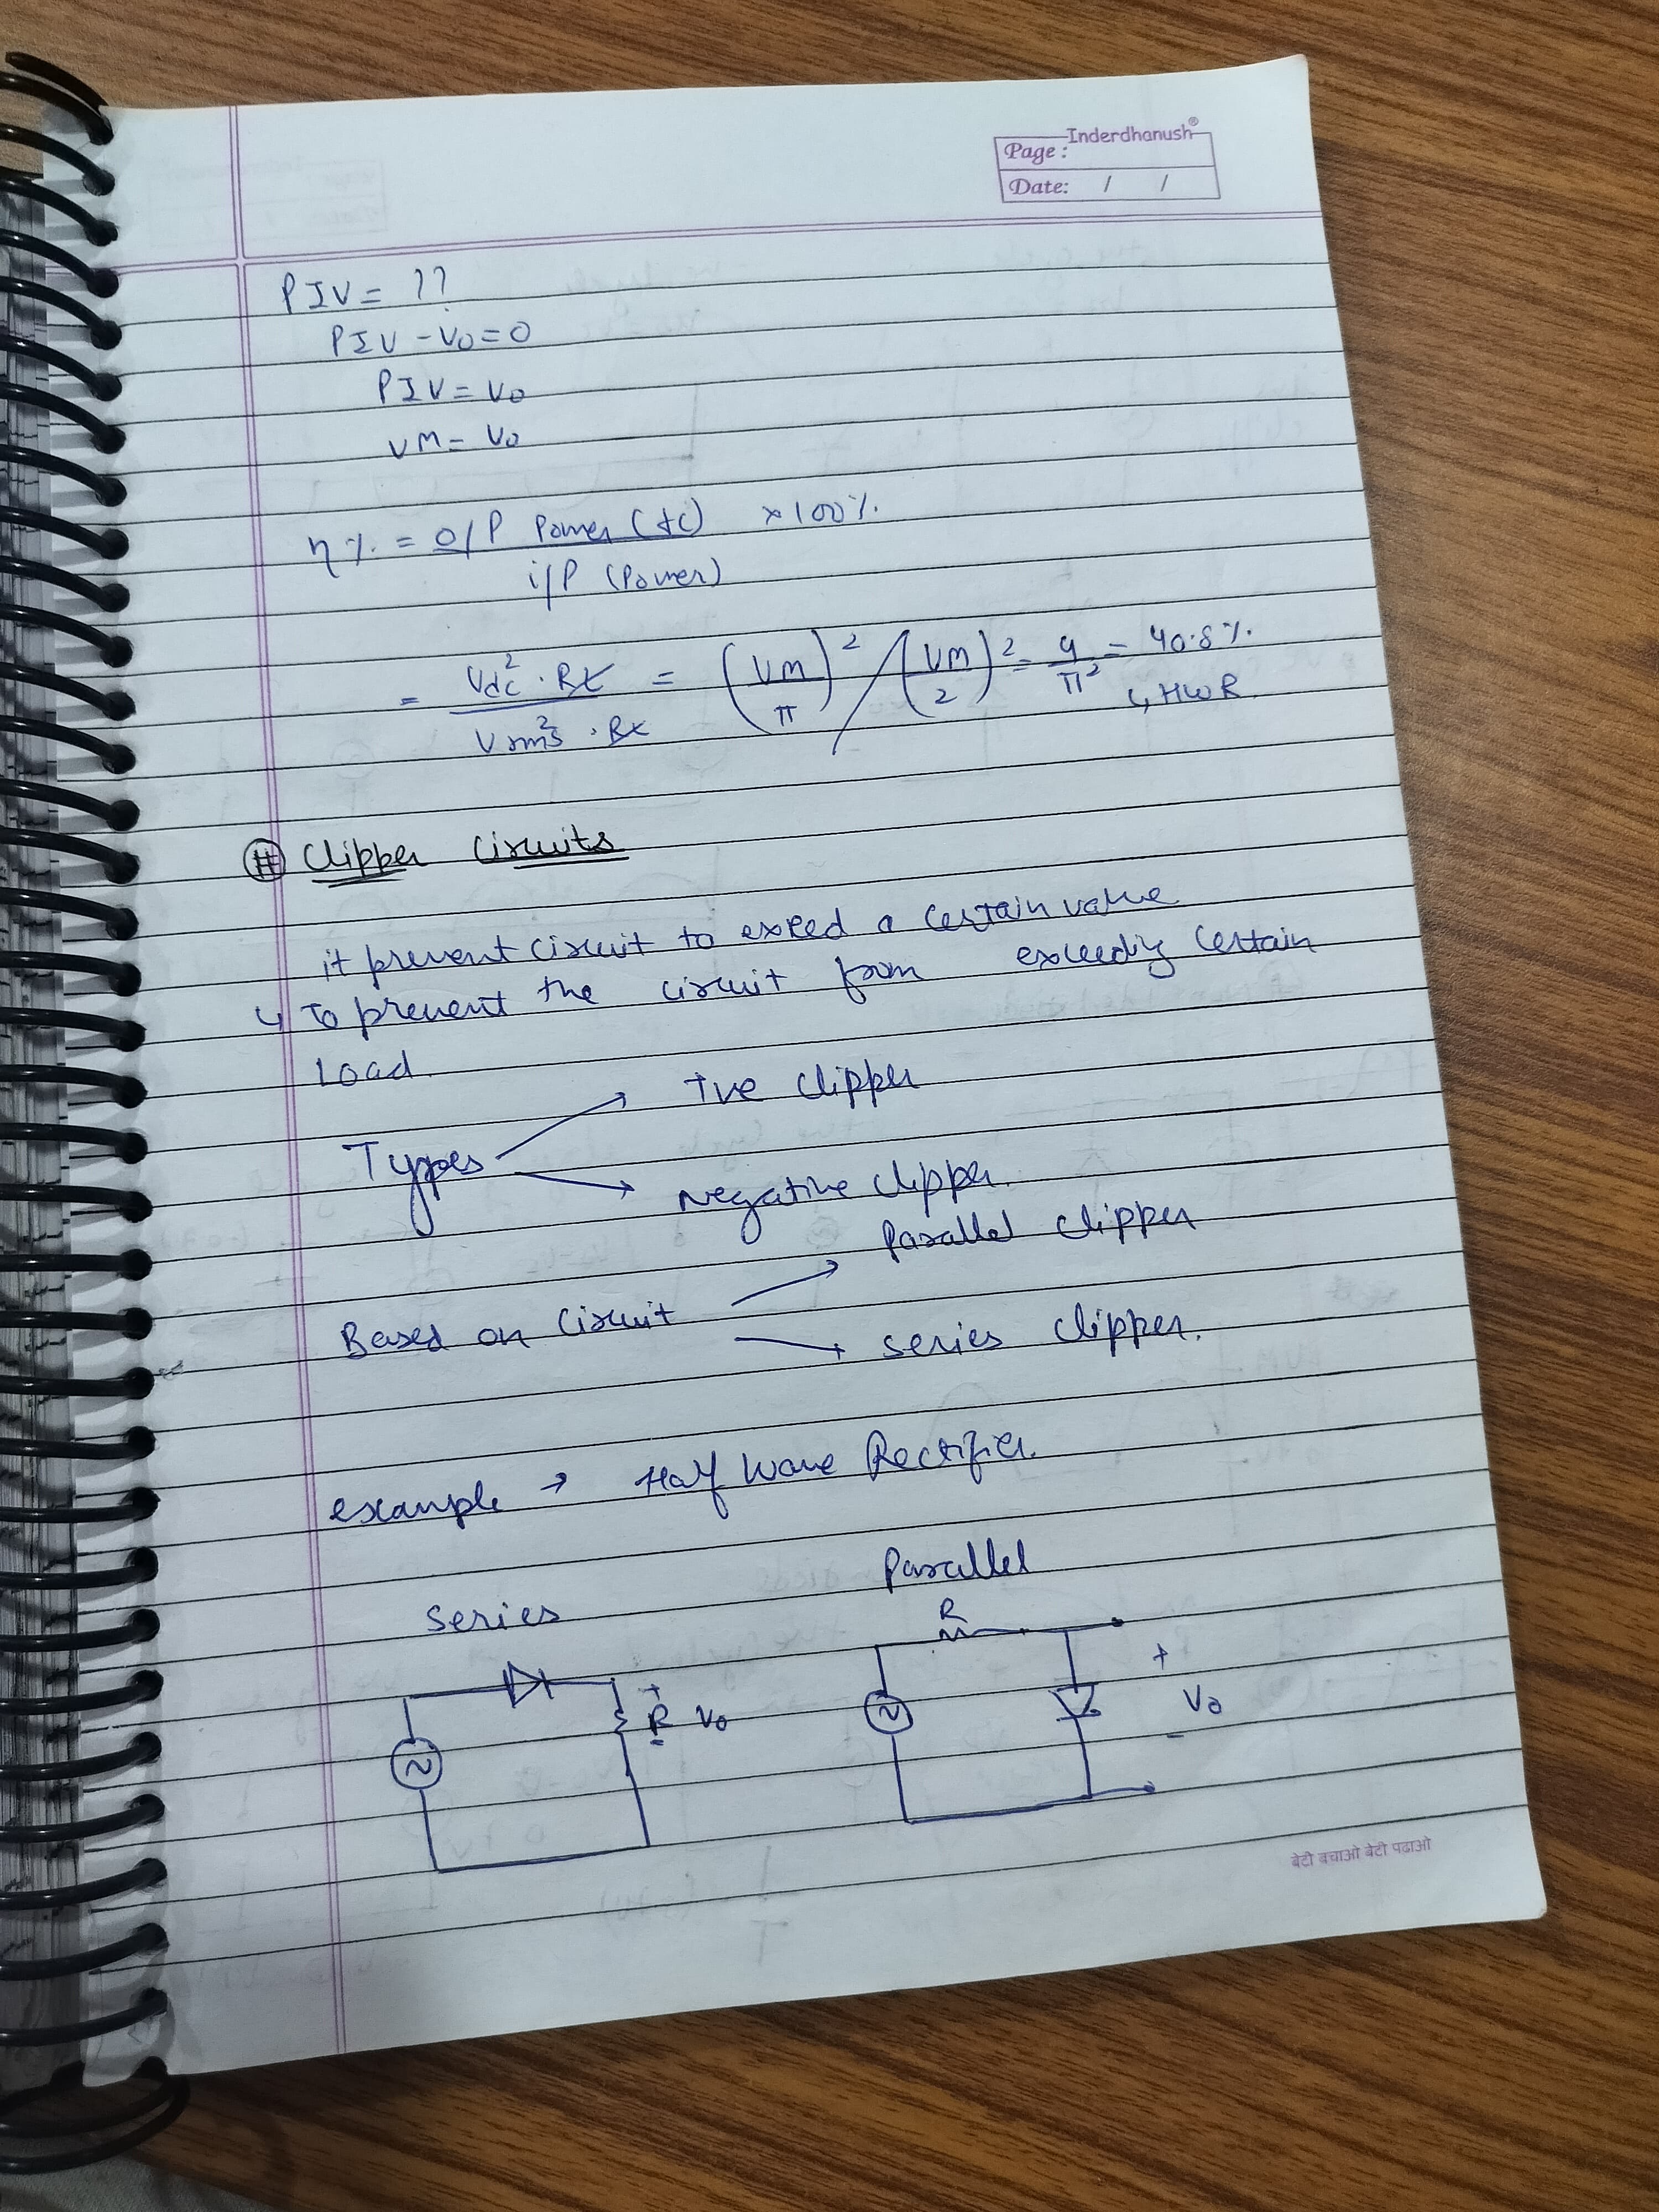 Inderdhanush®
Page :
Date: / /
PIV = ??
PIV - V0 = 0
PIV = V0
VM = V0
η % = O/P Power (dc) × 100%
i/P (Power)
= Vdc² · RL / Vrms² · RL = (VM/π)² / (VM/2)² = 4/π² = 40.8%
↳ HWR
# Clipper Circuits
it prevent circuit to exceed a certain value
↳ To prevent the circuit from exceeding certain
Load.
Types → +ve clipper
→ Negative clipper.
Based on circuit → parallel clipper
→ series clipper.
example → Half Wave Rectifier.
Series
Parallel
R
+
R V0
-
+
V0
-
बेटी बचाओ बेटी पढाओ